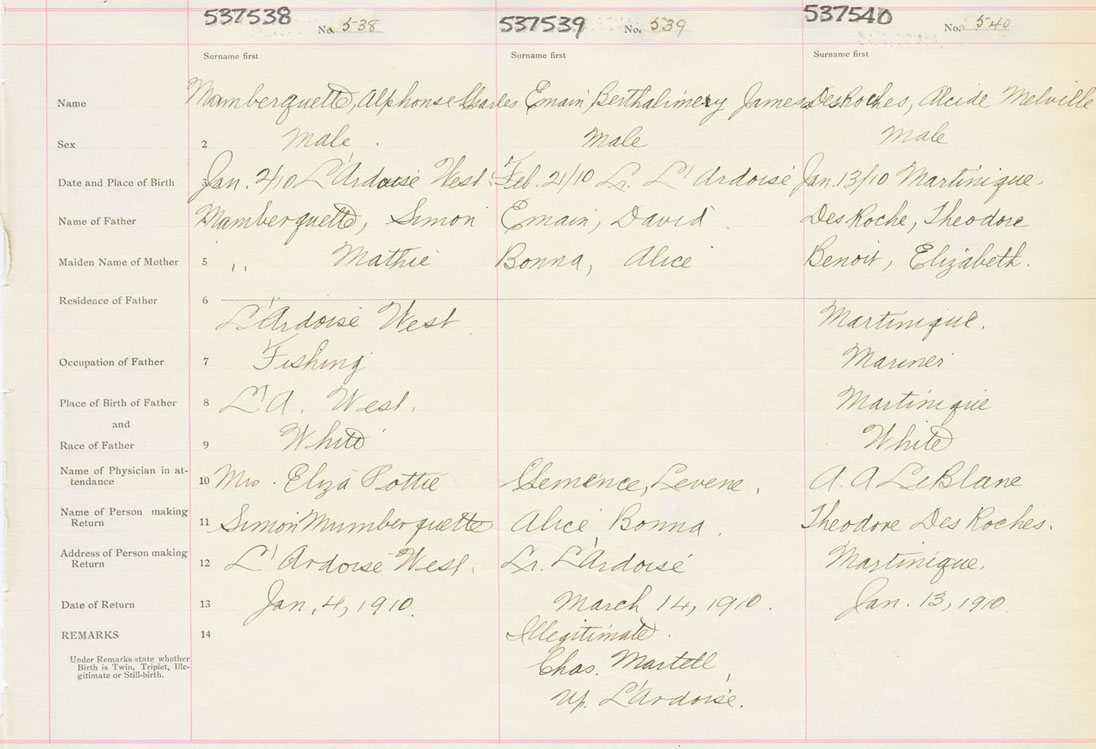 537538 No. 538 537539 No. 539 537540 No. 540
Surname first Surname first Surname first
Name Mamberquette, Alphonse Charles Emain Berthalimery James DesRoches, Alcide Melville
Sex 2 Male Male Male
Date and Place of Birth 3 Jan. 2/10 L'Ardoise West Feb. 21/10 Lr. L'Ardoise Jan. 13/10 Martinique.
Name of Father Mamberquette, Simon Emain, David DesRoche, Theodore
Maiden Name of Mother 5 " Mathie Bonna, Alice Benoit, Elizabeth.
Residence of Father 6
L'Ardoise West Martinique.
Occupation of Father 7 Fishing Mariner
Place of Birth of Father 8 L'A. West. Martinique
and
Race of Father 9 White White
Name of Physician in at-
tendance 10 Mrs. Eliza Pottie Clemence, Levene. A. A LeBlanc
Name of Person making
Return 11 Simon Mumberquette Alice Bonna. Theodore Des Roches.
Address of Person making
Return 12 L'Ardoise West. Lr. L'Ardoise Martinique.
Date of Return 13 Jan. 4, 1910. March 14, 1910. Jan. 13, 1910.
REMARKS 14 Illegitimate.
Under Remarks state whether
Birth is Twin, Triplet, Ille-
gitimate or Still-birth.
Chas. Martell,
Up. L'Ardoise.